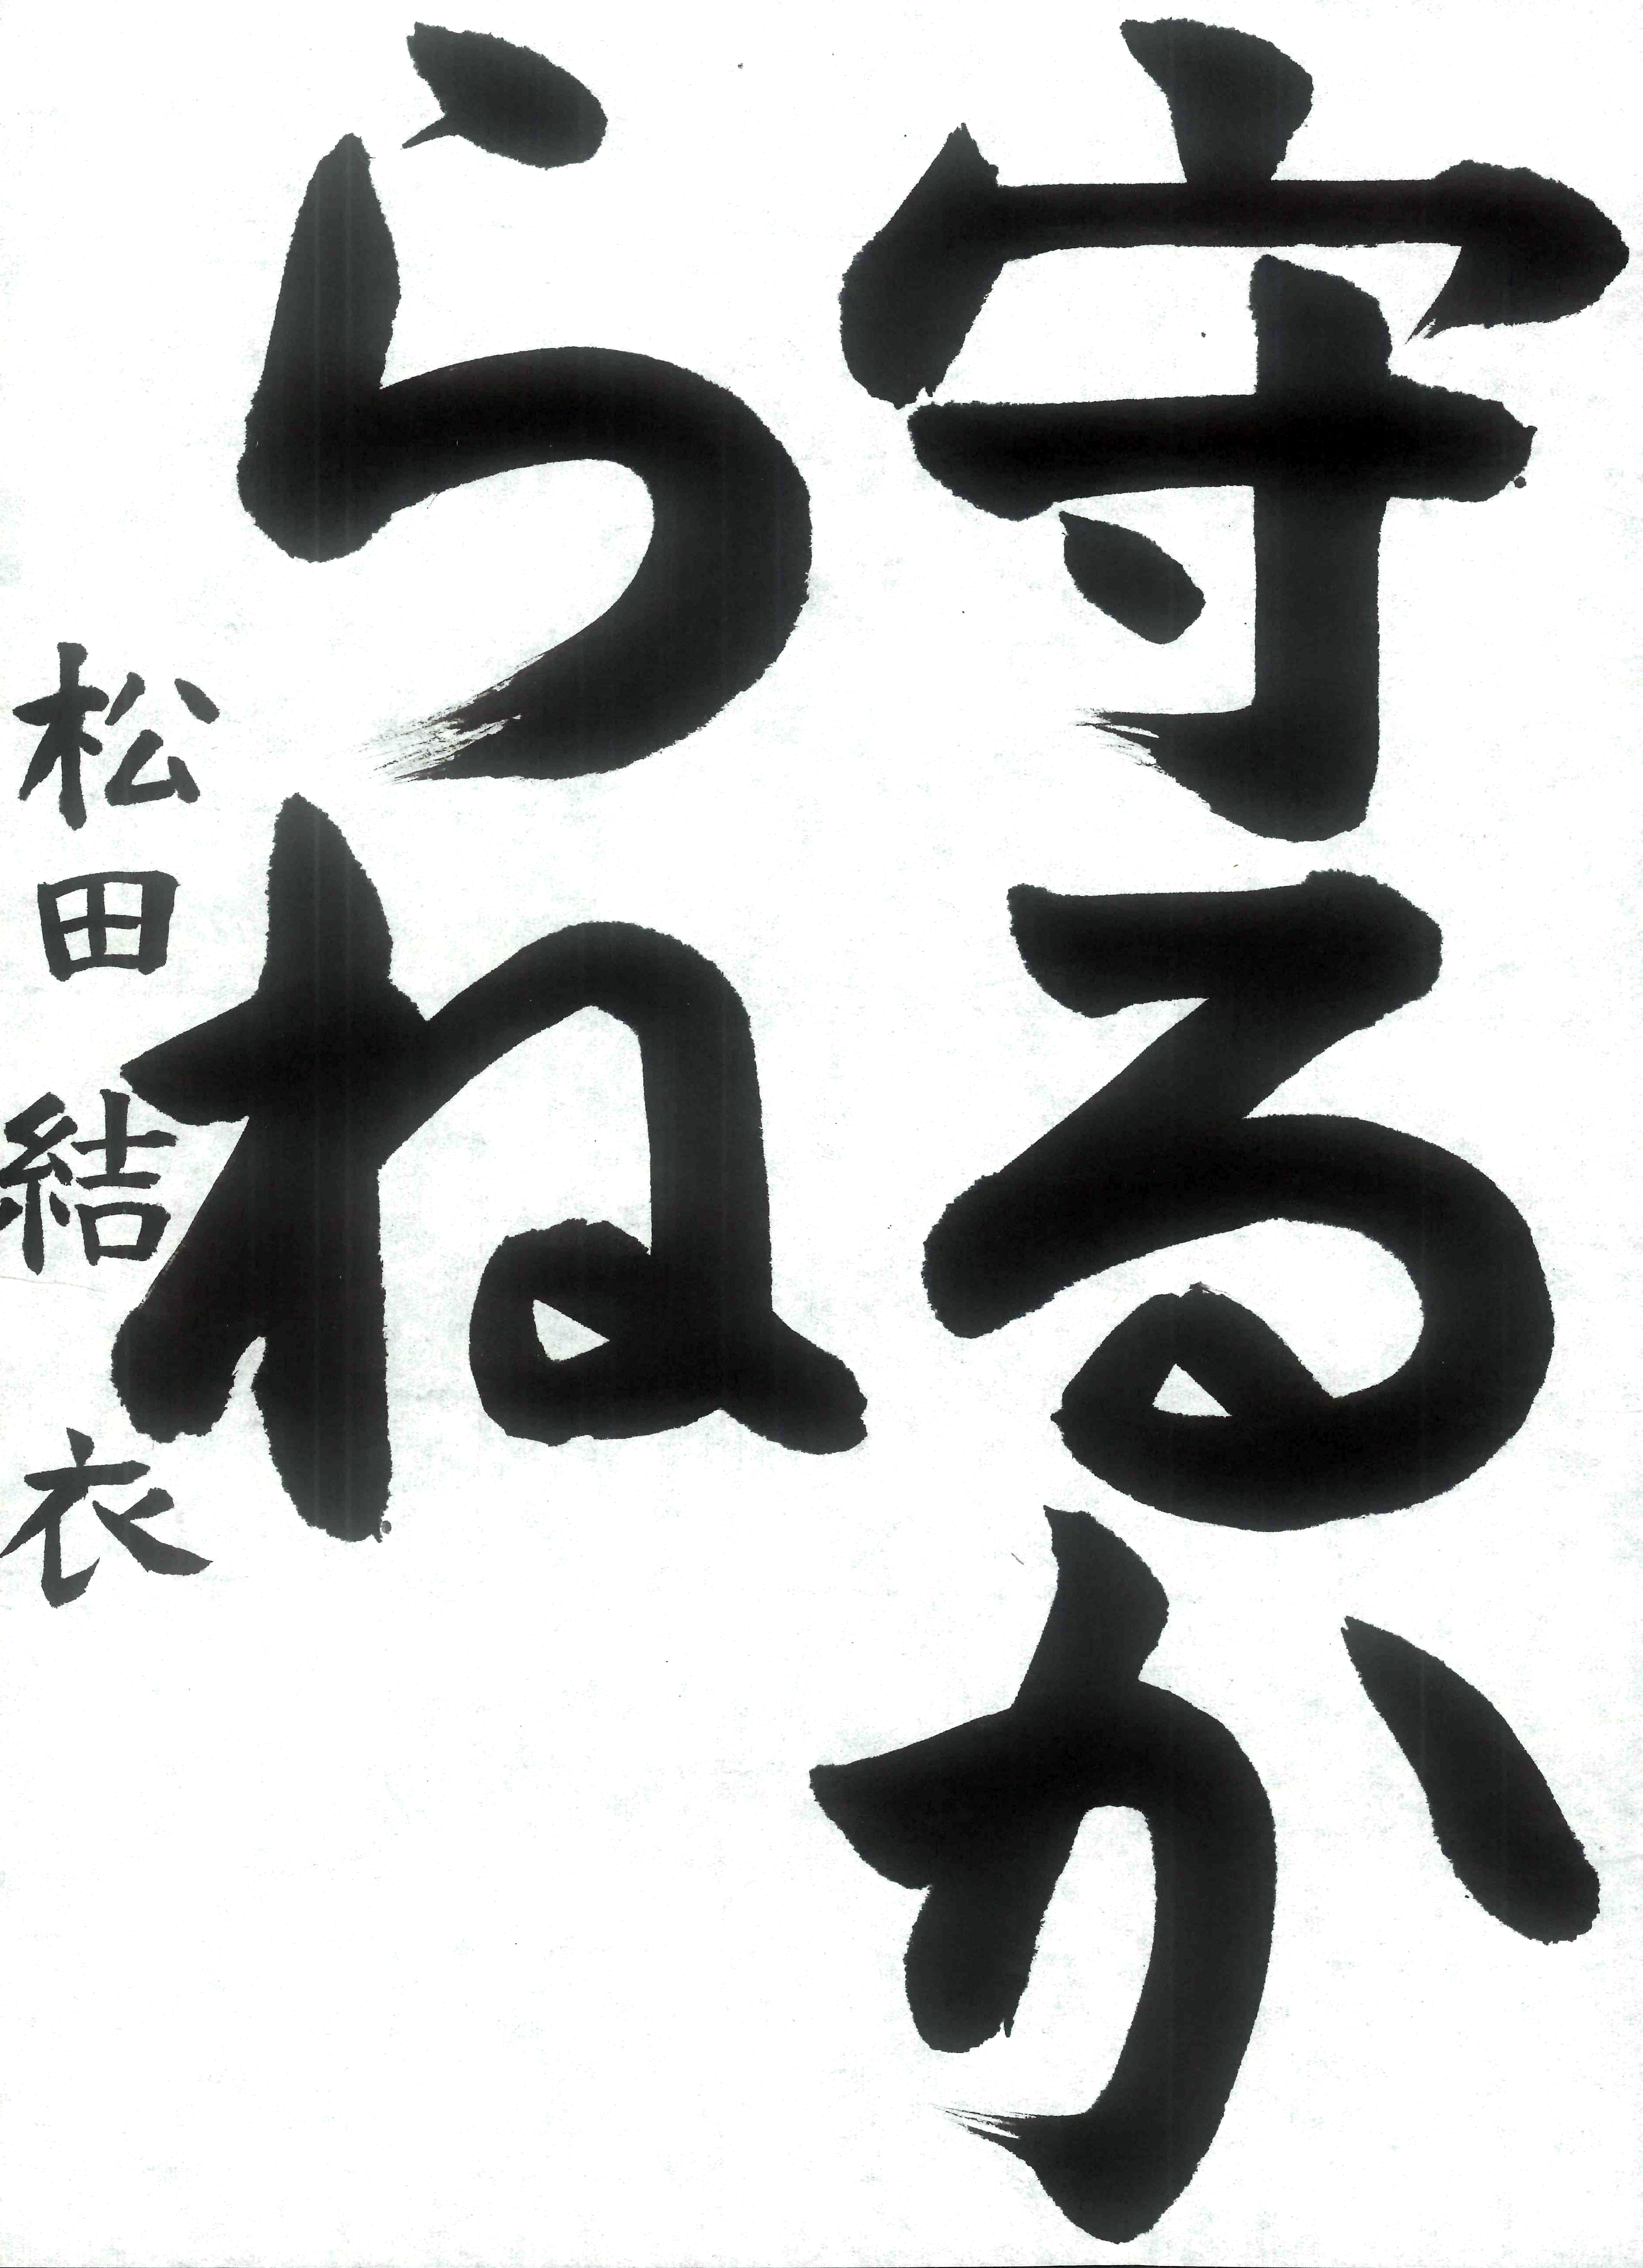 守るか
らね
松田結衣